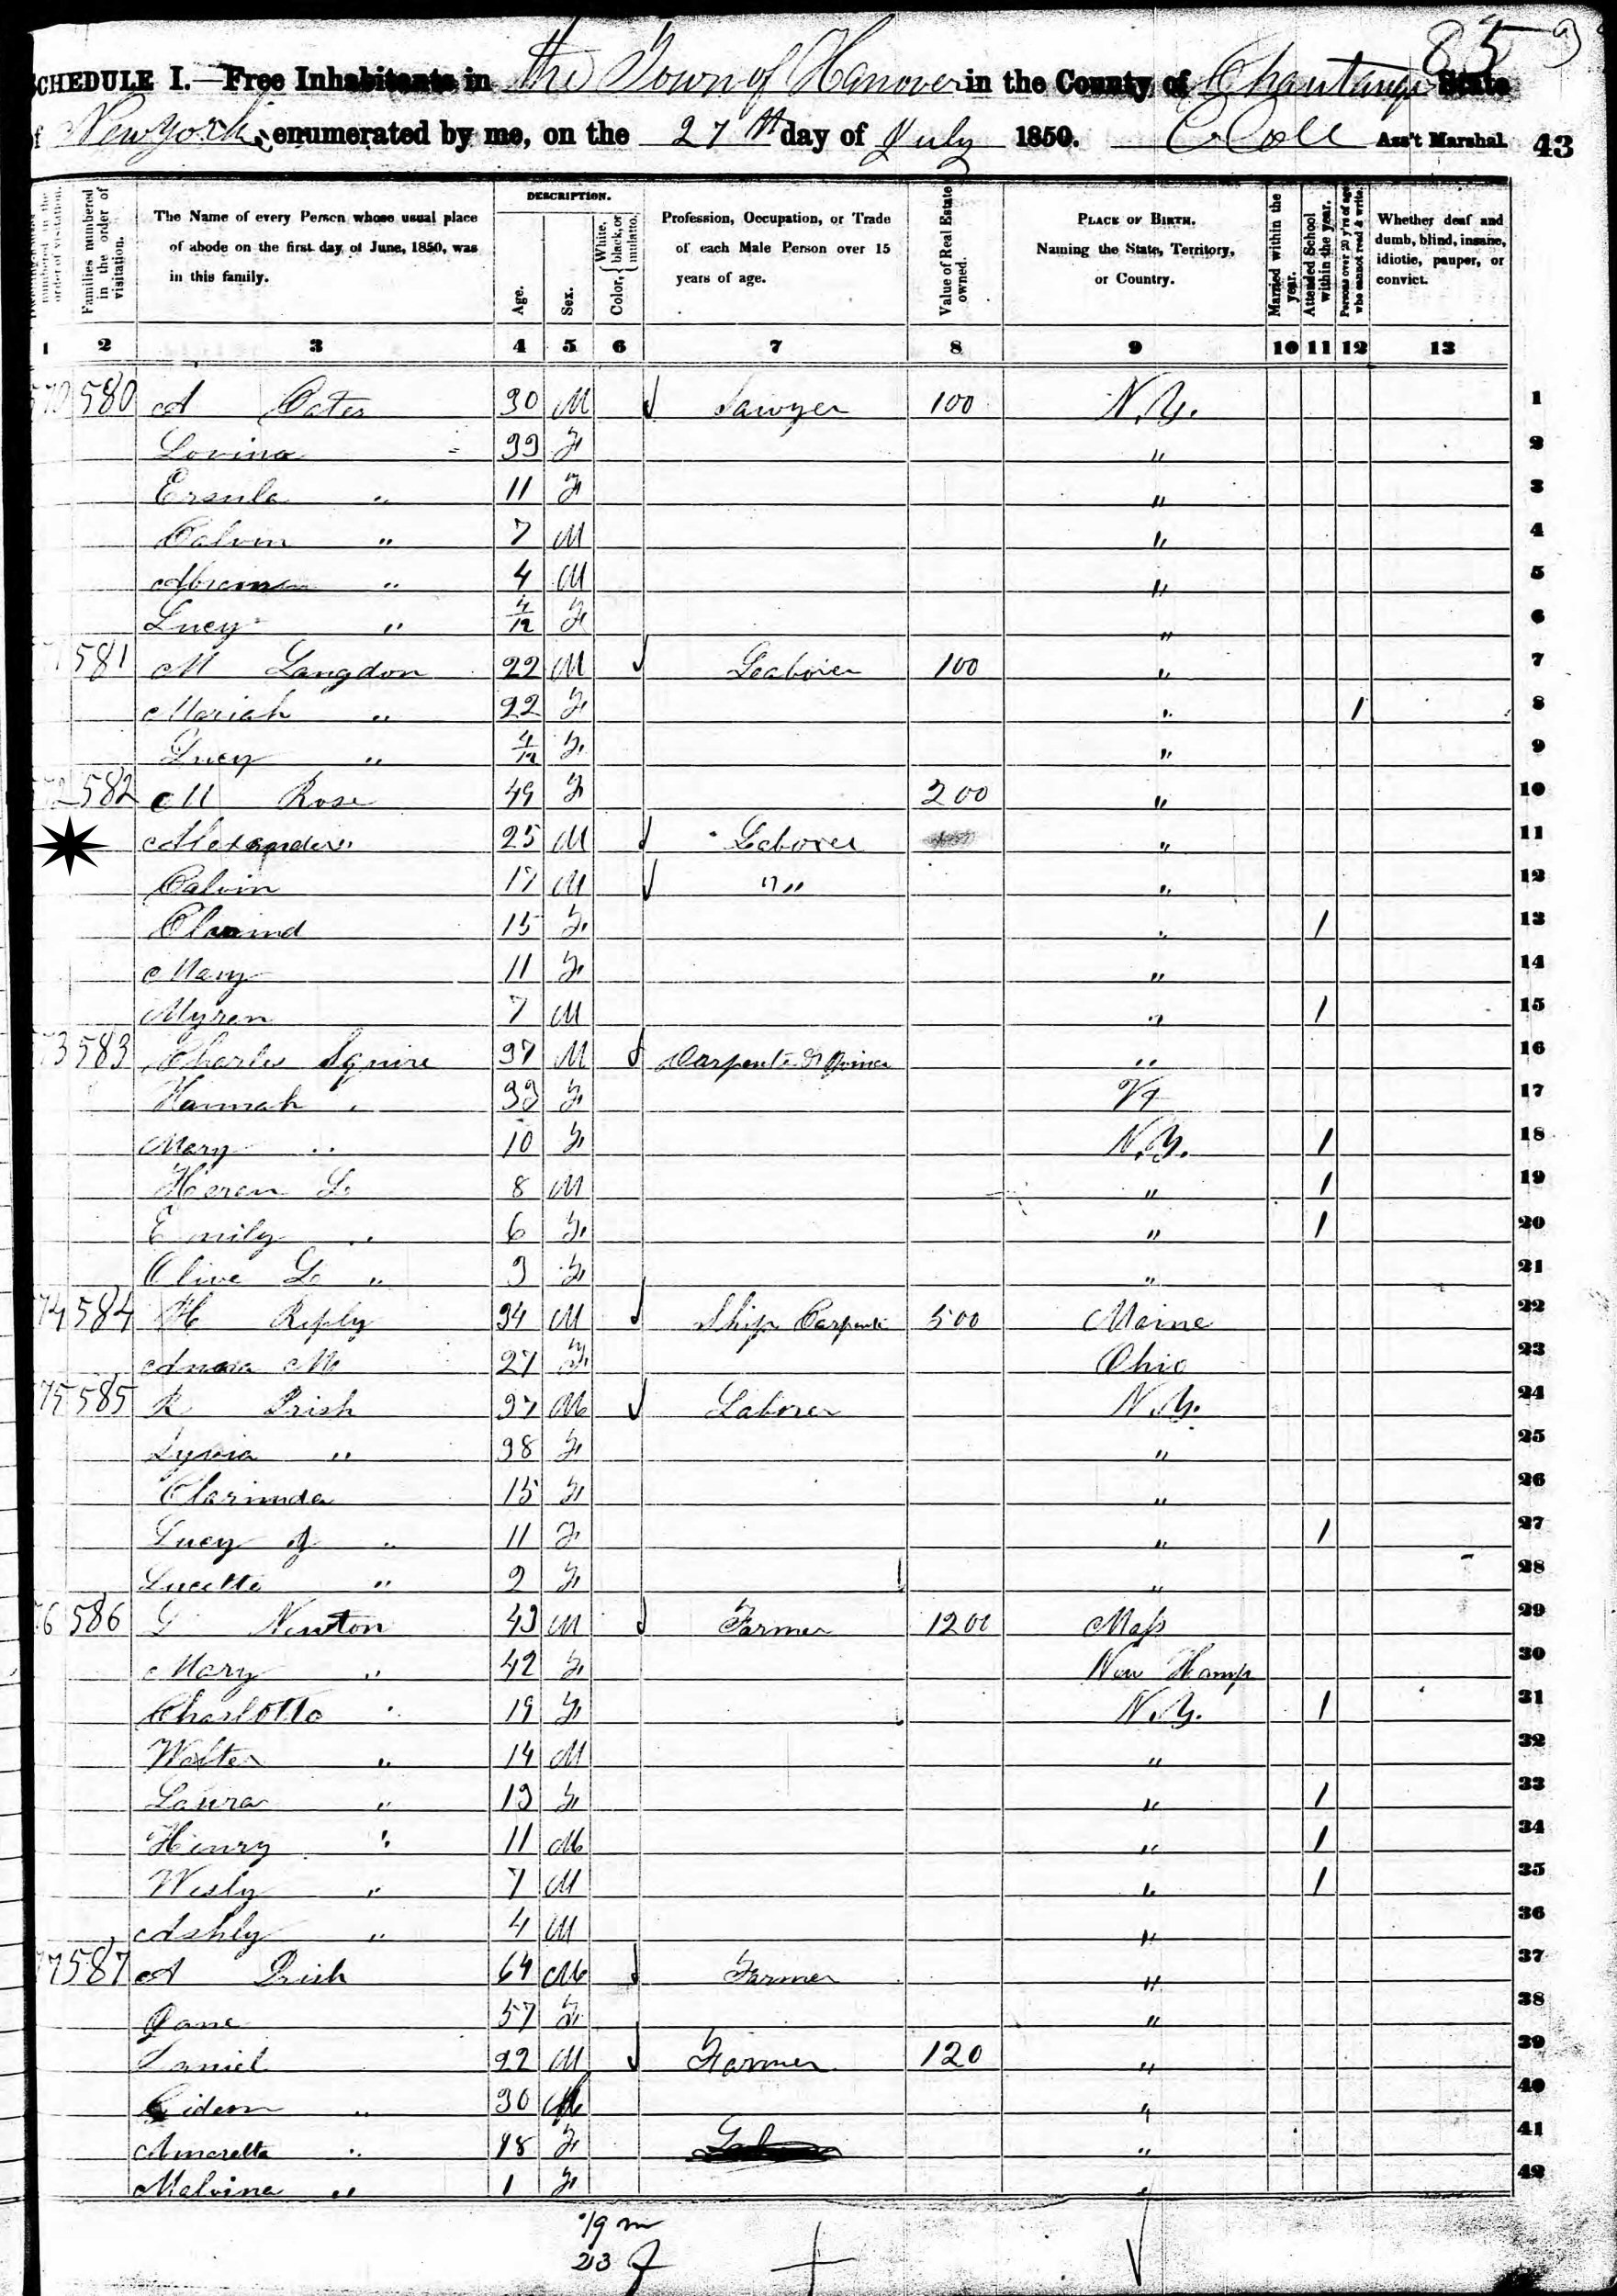 85
SCHEDULE I.—Free Inhabitants in the Town of Hanover in the County of Chautauqe State
of New York enumerated by me, on the 27th day of July 1850. C Cole Ass't Marshal. 43
DESCRIPTION.
Families numbered in the order of visitation.
The Name of every Person whose usual place of abode on the first day of June, 1850, was in this family.
Age.
Sex.
Color, White, black, or mulatto.
Profession, Occupation, or Trade of each Male Person over 15 years of age.
Value of Real Estate owned.
PLACE OF BIRTH. Naming the State, Territory, or Country.
Married within the year.
Attended School within the year.
Persons over 20 y'rs of age who cannot read & write.
Whether deaf and dumb, blind, insane, idiotic, pauper, or convict.
1 2 3 4 5 6 7 8 9 10 11 12 13
580 A 30 M Sawyer 100 N.Y. 1
Lovina 33 F " 2
Ersula " 11 F " 3
Calvin " 7 M " 4
" 4 M " 5
Lucy " 4/12 F " 6
581 M Langdon 22 M Laborer 100 " 7
Mariah " 22 F " 1 8
Lucy " 4/12 F " 9
72 582 M Rose 49 F 200 " 10
Alexander " 25 M Laborer " 11
Calvin 17 M " " 12
15 F " 1 13
Mary 11 F " 14
Myren 7 M " 1 15
73 583 Charles Squire 37 M Carpenter & Joiner " 16
Hannah " 33 F Vt 17
Mary " 10 F N.Y. 1 18
L 8 M " 1 19
Emily " 6 F " 1 20
Olive L " 3 F " 21
74 584 H Reply 34 M Ship Carpente 500 Maine 22
M 27 F Ohio 23
75 585 R Prish 37 M Laborer N.Y. 24
" 38 F " 25
Clarinda 15 F " 26
Lucy " 11 F " 1 27
Lucetta " 2 F " 28
76 586 G Newton 43 M Farmer 1200 Mass 29
Mary " 42 F New Hamp 30
Charlotte " 19 F N.Y. 1 31
Walter " 14 M " 32
Laura " 13 F " 1 33
Henry " 11 M " 1 34
Wesly " 7 M " 1 35
Ashly " 4 M " 36
77 587 A Prish 64 M Farmer " 37
Jane 57 F " 38
Daniel 22 M Farmer 120 " 39
" 30 M " 40
Amaretta " 18 F " 41
Malvina " 1 F " 42
19 m
23 f